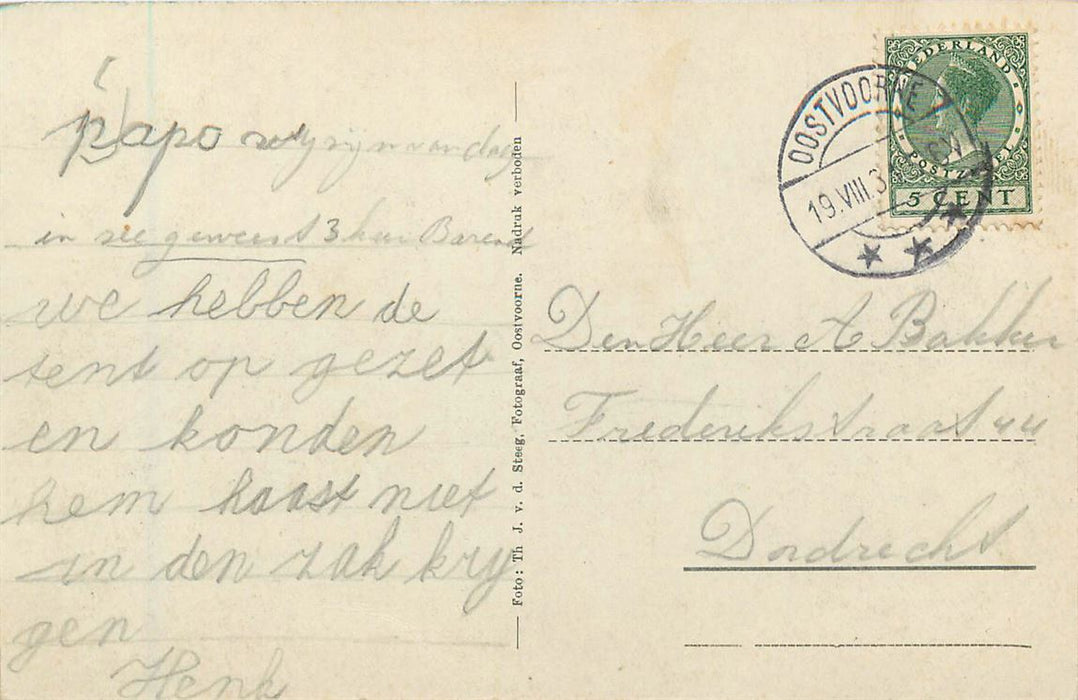 papo wy zyn vandag
in zee geweest 3 keer Barend
we hebben de
tent op gezet
en konden
hem haast niet
in den zak kry
gen
Henk
Foto: Th J. v. d. Steeg, Fotograaf, Oostvoorne. Nadruk verboden
NEDERLAND
POSTZEGEL
5 CENT
OOSTVOORNE
19.VIII.3
Den Heer A Bakker
Frederikstraat 44
Dordrecht